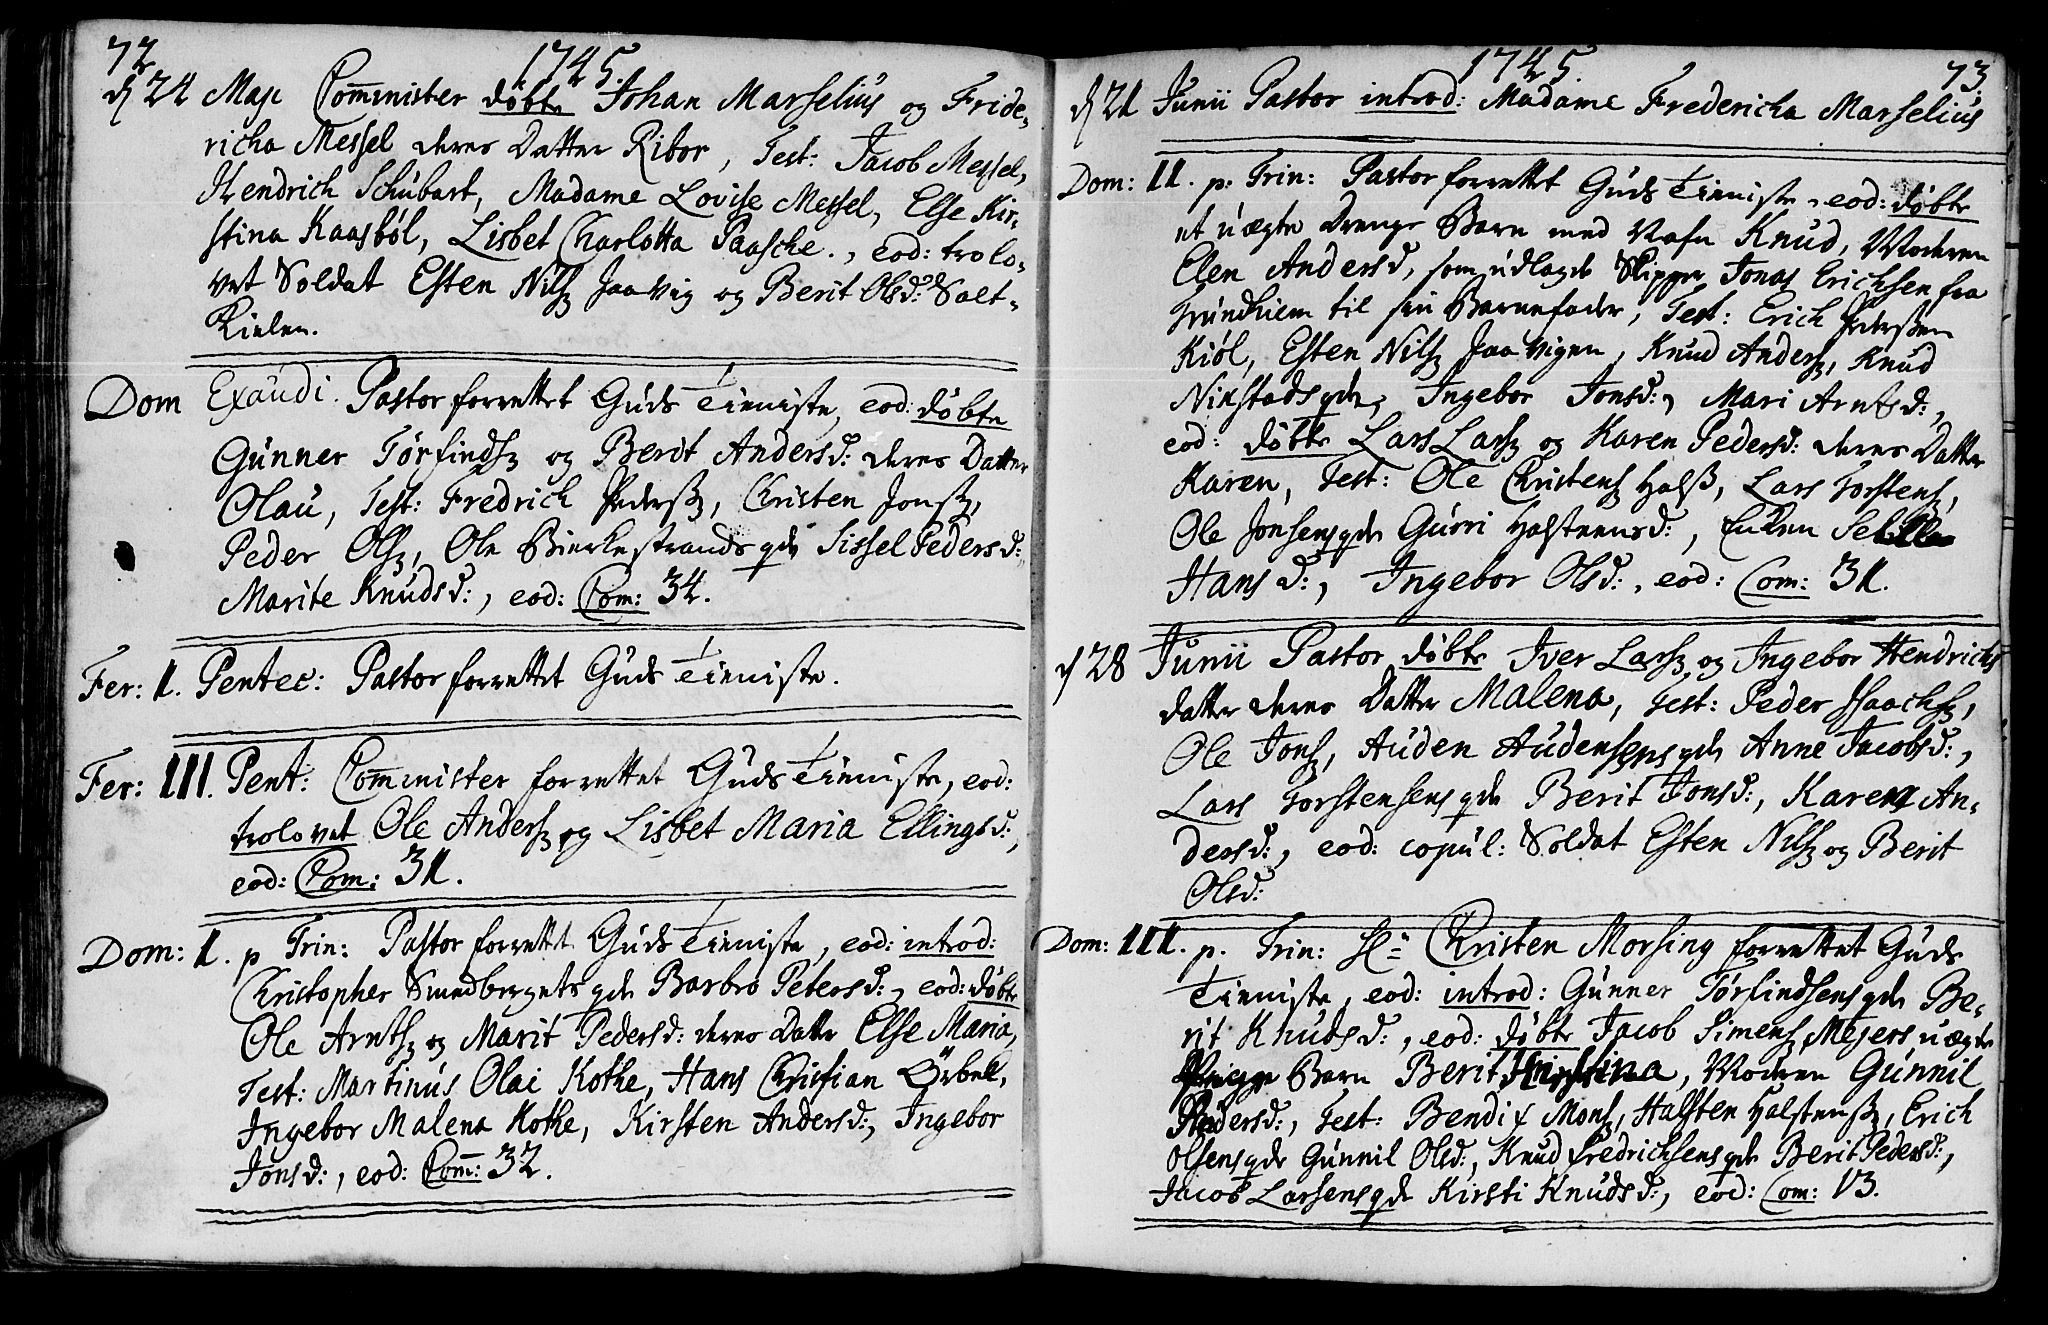 72
1745.
d 24 Maji Comminister døbte Johan Marselius og Fride-
richa Messel deres Datter Ribor, Test: Jacob Messel,
Hendrich Schubart, Madame Lovise Messel, Else Kir-
stina Kaasbøl, Lisbet Charlotta Paasche., eod: trolo-
vet Soldat Esten Nils: Jaavig og Berit Olsd: Salt-
Kielen.
Dom Exaudi. Pastor forrettet Guds Tieniste, eod: døbte
Gunner Torfinds: og Berit Andersd: deres Datter
Olau, Test: Fredrich Pederss:, Christen Jonss:,
Peder Ols:, Ole Bierkestrands qde Sissel Pedersd:
Marite Knudsd:, eod: Com: 34.
Fer: I. Pentec: Pastor forrettet Guds Tieniste.
Fer: III. Pent: Comminister forrettet Guds Tieniste, eod:
trolovet Ole Anders: og Lisbet Maria Ellingsd:,
eod: Com: 31.
Dom: I. p Trin: Pastor forrettet Guds Tieniste, eod: introd:
Christopher Smedbergets qde Barbro Petersd:, eod: døbte
Ole Arnts: og Marit Pedersd: deres Datter Else Maria,
Test: Martinus Olai Kothe, Hans Christian Ørbek,
Ingebor Malena Kothe, Kirsten Andersd:, Ingebor
Jonsd:, eod: Com: 32.
1745.
73.
d 21 Junii Pastor introd: Madame Fredericha Marselius
Dom: II. p: Trin: Pastor forrettet Guds Tieniste, eod: døbte
et uægte Drenge Barn med Nafn Knud, Moderen
Elen Andersd, som udlagde Skipper Jonas Erichsen fra
Trundhiem til sin Barnefader, Test: Erich Pederssen
Kiøl, Esten Nils: Jaavigen, Knud Anders:, Knud
Nixstads qde, Ingebor Jonsd:, Mari Arntsd:,
eod: døbte Lars Lars: og Karen Pedersd: deres Datter
Karen, Test: Ole Christens: Halss, Lars Torstens:,
Ole Jonsens qde Gurri Halsteensd:, Enken
Hansd:, Ingebor Olsd:, eod: Com: 31.
d 28 Junii Pastor døbte Iver Lars: og Ingebor Hendrichs
datter deres Datter Malena, Test: Peder Isaachs:,
Ole Jons:, Auden Audensens qde Anne Jacobsd:,
Lars Torstensens qde Berit Jonsd:, Karen An-
dersd:, eod: copul: Soldat Esten Nils: og Berit
Olsd:
Dom: III. p. Trin: Hr: Christen Morsing forrettet Guds
Tieniste, eod: introd: Gunner Torfindsens qde Be-
rit Knudsd:, eod: døbte Jacob Simens: Mejers uægte
Pige Barn Berit Kirstina, Moderen Gunnil
Pedersd:, Test: Bendix Mons:, Halsten Halstenss:, Erich
Olsens qde Gunnil Olsd:, Knud Fredrichsens qde Berit Pedersd:,
Jacob Larsens qde Kirsti Knudsd:, eod: Com: 13.